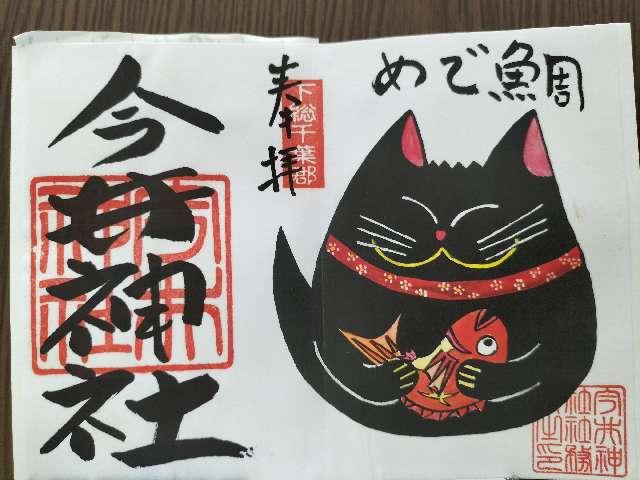 めで鯛
奉拝
下総千葉郡
今井神社
今井神
社社務
之印